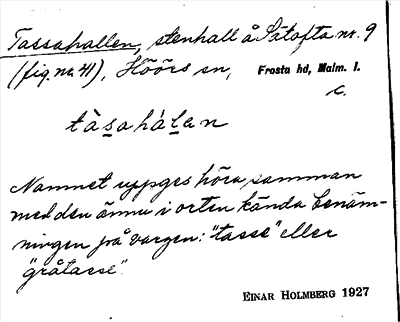 Tassahallen, stenhall å Sätofta nr. 9
(fig. nr. 41), Höörs sn, Frosta hd, Malm. l.
c.
tàsahàlen
Namnet uppges höra samman
med den ännu i orten kända benäm-
ningen på vargen: "tasse" eller
"gråtasse".
EINAR HOLMBERG 1927